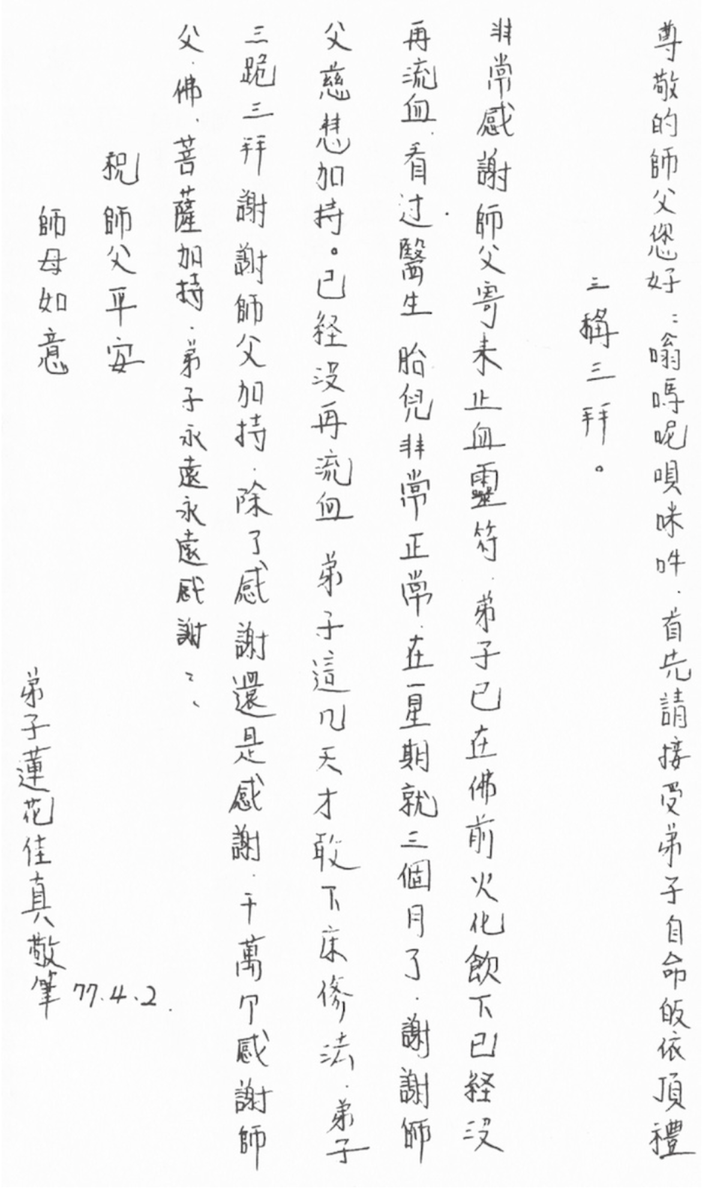 尊敬的師父您好：嗡嗎呢唄咪吽．首先請接受弟子自命皈依頂禮
三稱三拜。
非常感謝師父寄來止血靈符．弟子已在佛前火化飲下已経没
再流血．看过醫生胎兒非常正常．在一星期就三個月了．謝謝師
父慈慧加持。已経没再流血 弟子這几天才敢下床修法．弟子
三跪三拜謝謝師父加持．除了感謝還是感謝．千萬个感謝師
父．佛．菩薩加持．弟子永遠永遠感謝：、
祝師父平安
師母如意
弟子蓮花佳真敬筆
77.4.2.